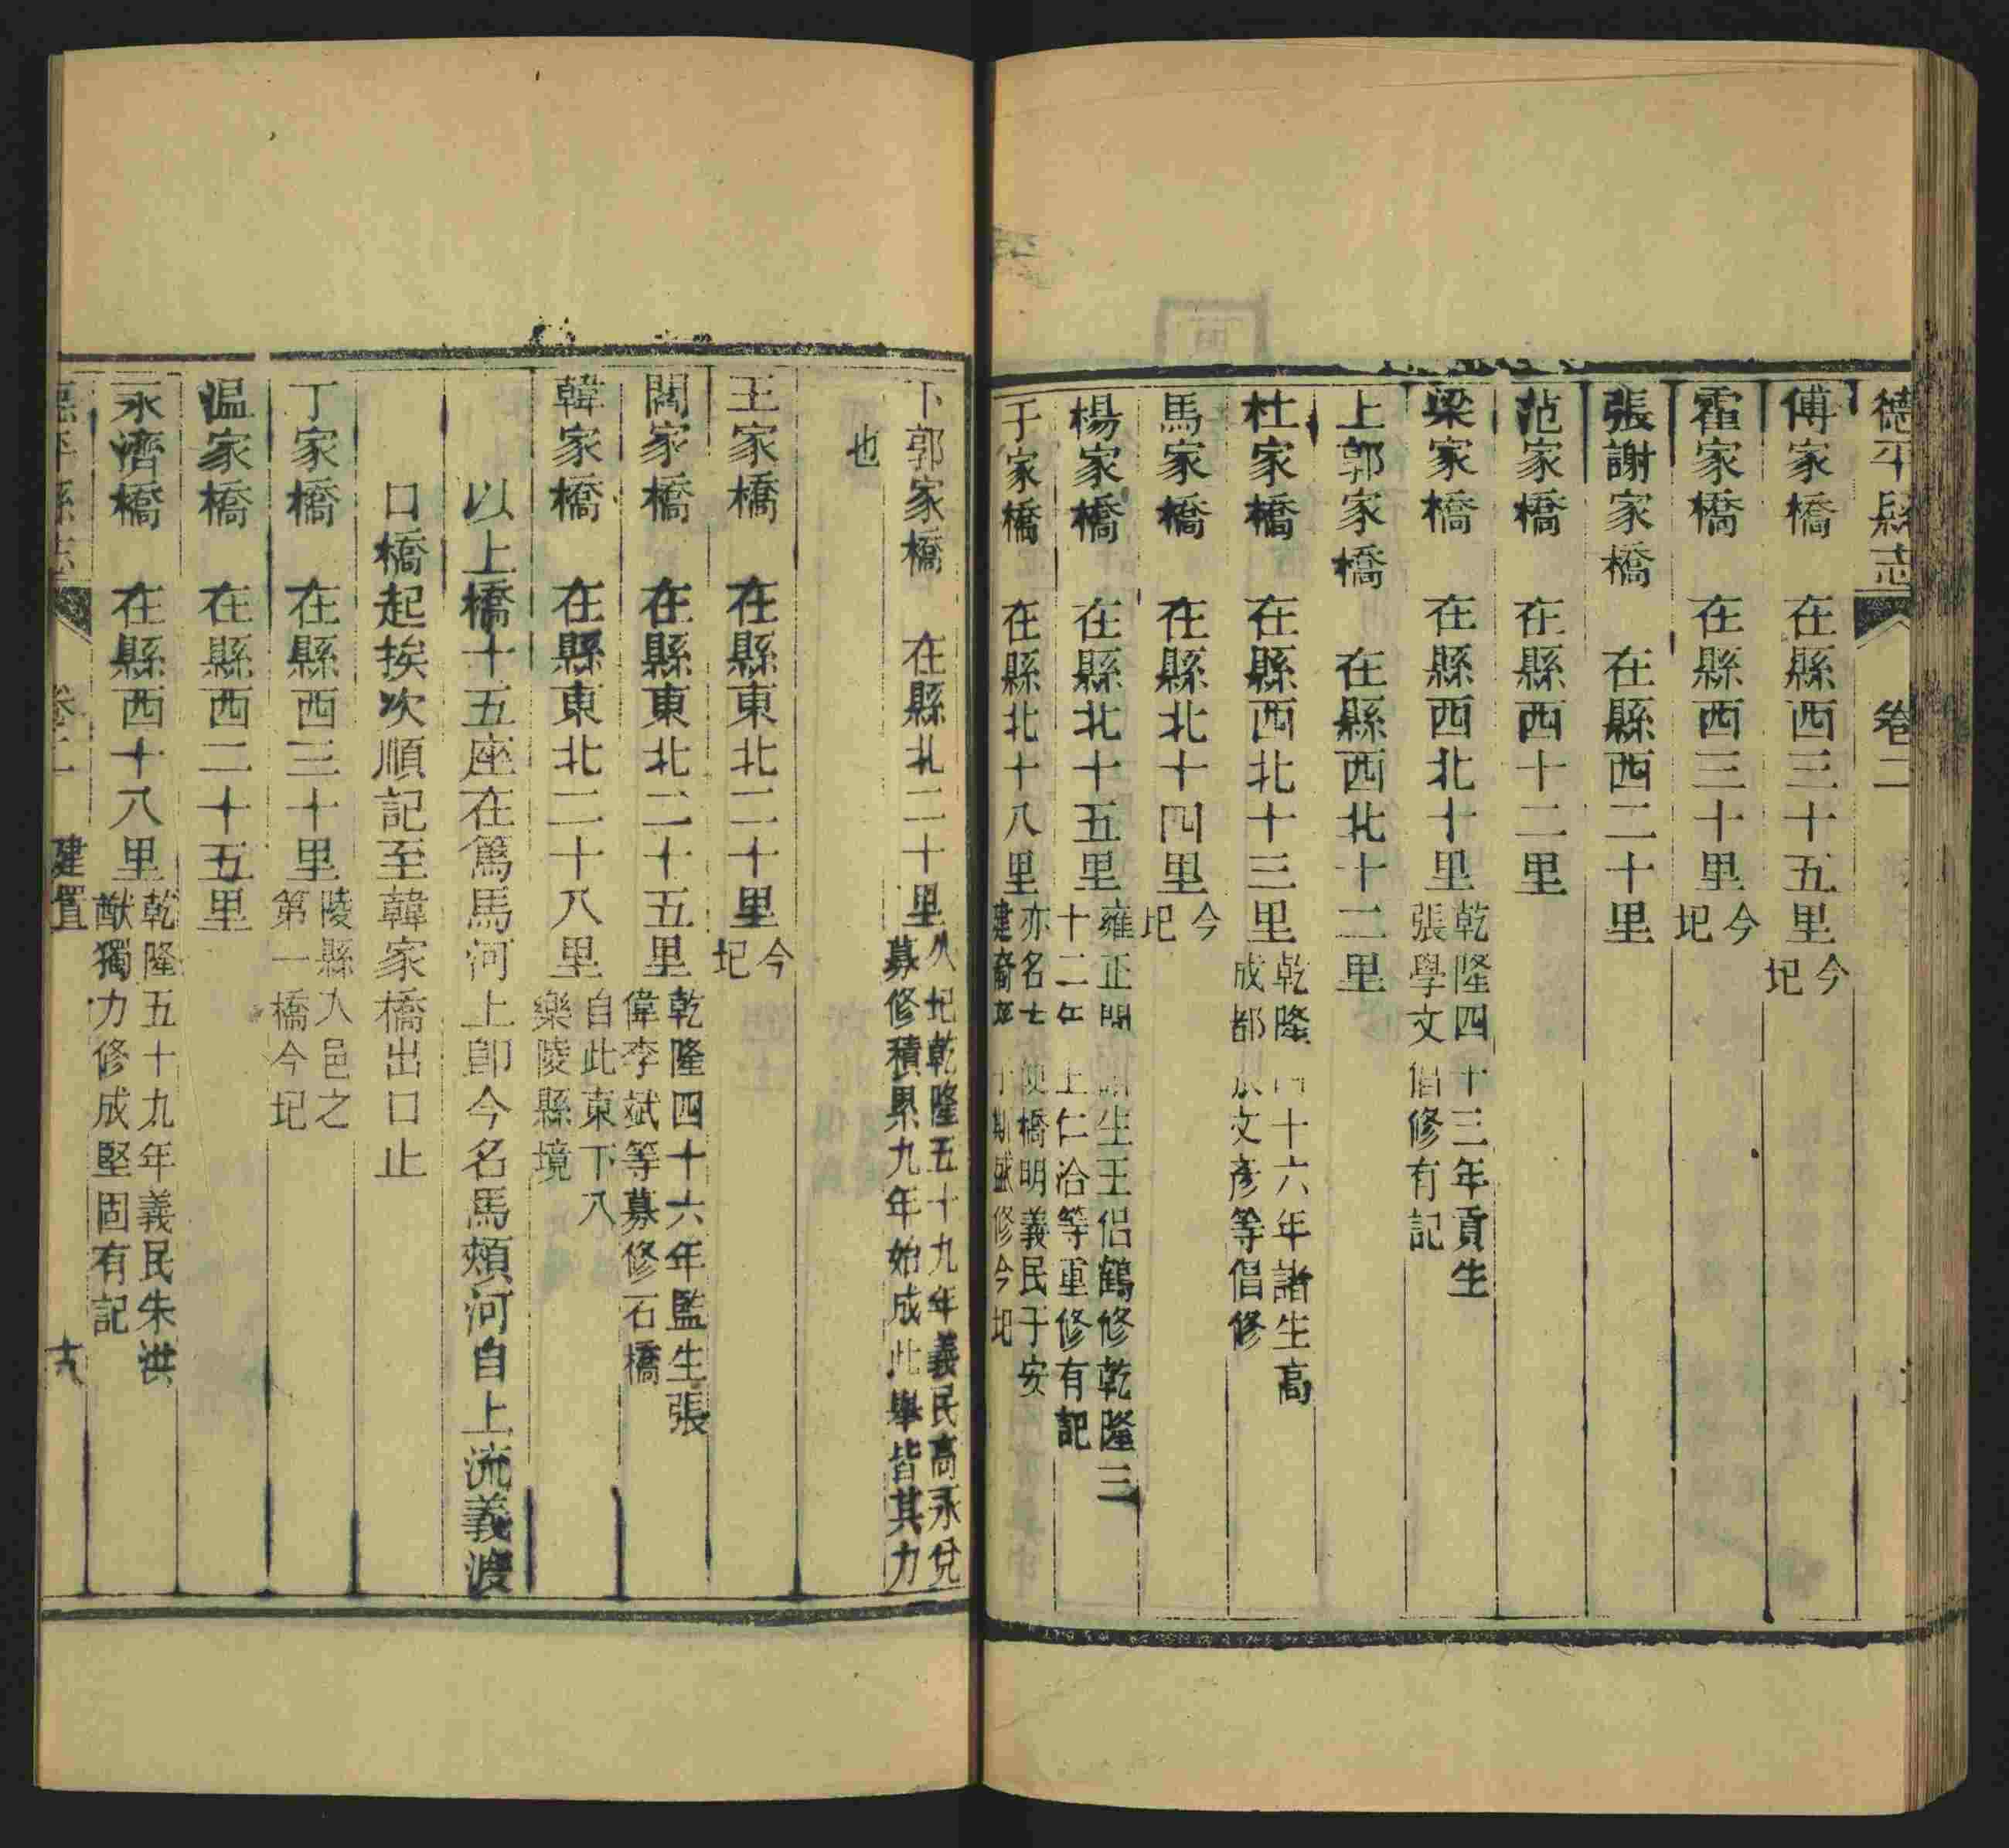 德平縣志 卷二
傅家橋 在縣西三十五里 今圮
霍家橋 在縣西三十里 今圮
張謝家橋 在縣西二十里
范家橋 在縣西十二里
梁家橋 在縣西北十里 乾隆四十三年貢生張學文倡修有記
上郭家橋 在縣西北十二里
杜家橋 在縣西北十三里 乾隆四十六年諸生高成都 文彥等倡修
馬家橋 在縣北十四里 今圮
楊家橋 在縣北十五里 雍正間 生王侶鶴修乾隆三十二年 王仁洽等重修有記
于家橋 在縣北十八里 亦名 便橋明義民于安建裔 于斯盛修今圮
下郭家橋 在縣北二十里 久圮乾隆五十九年義民高永兌募修積累九年始成此舉皆其力
也
王家橋 在縣東北二十里 今圮
閻家橋 在縣東北二十五里 乾隆四十六年監生張偉李斌等募修石橋
韓家橋 在縣東北二十八里 自此東下入樂陵縣境
以上橋十五座在篤馬河上卽今名馬頰河自上流義渡
口橋起挨次順記至韓家橋出口止
丁家橋 在縣西三十里 陵縣入邑之第一橋今圮
温家橋 在縣西二十五里
永濟橋 在縣西十八里 乾隆五十九年義民朱洪猷獨力修成堅固有記
德平縣志 卷二 建置 十九